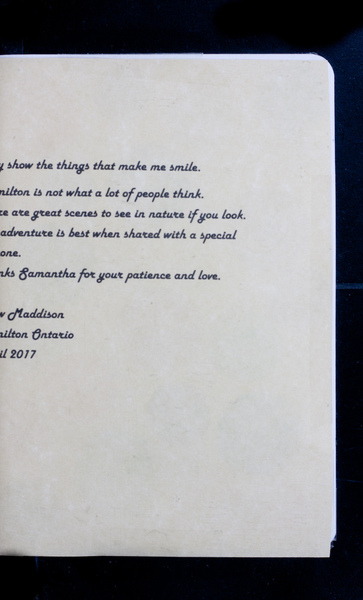 y show the things that make me smile.
milton is not what a lot of people think.
re are great scenes to see in nature if you look.
adventure is best when shared with a special
one.
nks Samantha for your patience and love.
w Maddison
milton Ontario
il 2017